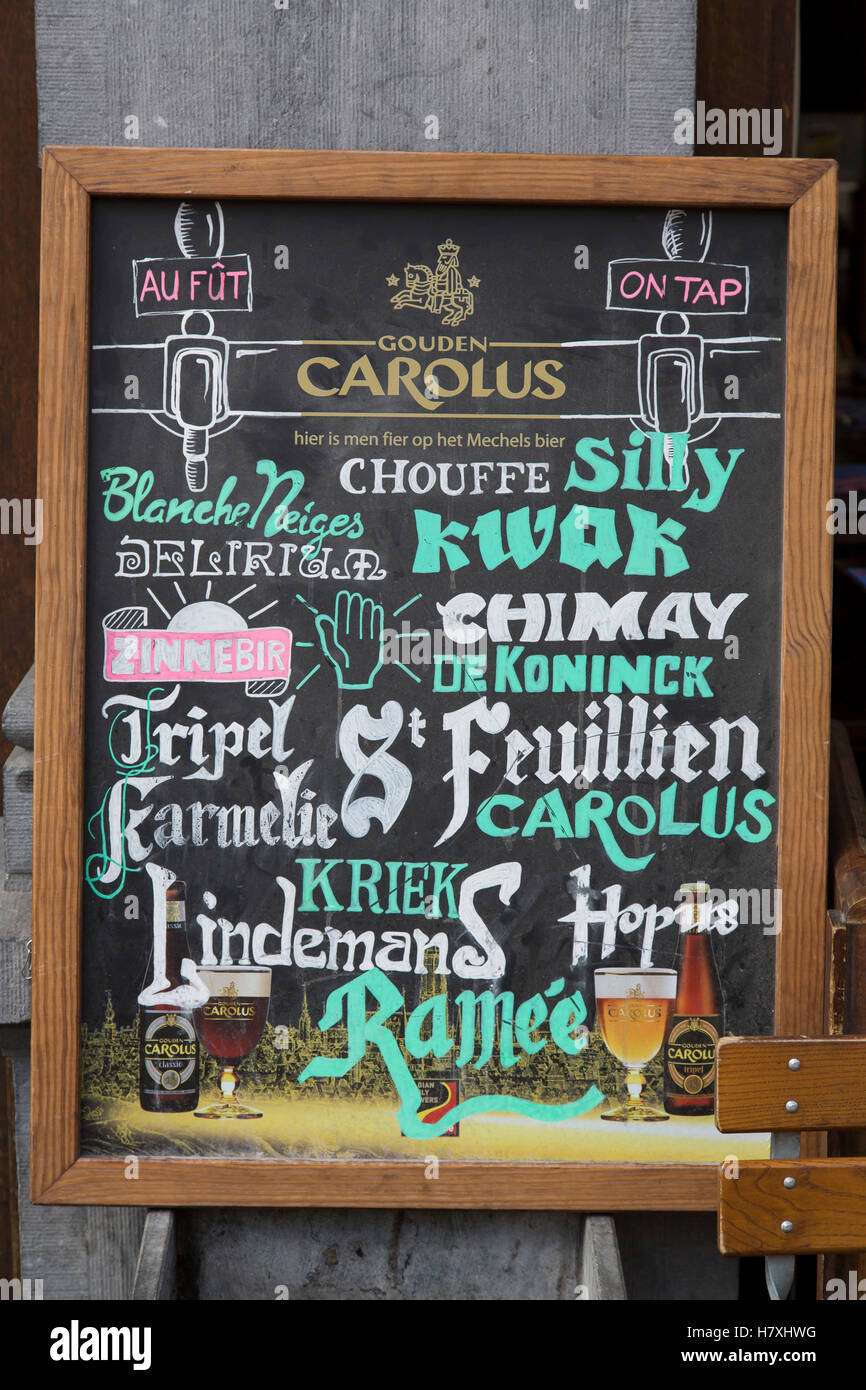 AU FÛT ON TAP
GOUDEN
CAROLUS
hier is men fier op het Mechels bier
CHOUFFE Silly
Blanche Neiges
KWAK
DELIRIUM
CHIMAY
ZINNEBIR
DE KONINCK
Tripel St Feuillien
Karmelie
CAROLUS
KRIEK
LindemanS
Hopus
Ramée
GOUDEN
CAROLUS
classic
GOUDEN
CAROLUS
tripel
alamy
Image ID: H7XHWG
www.alamy.com